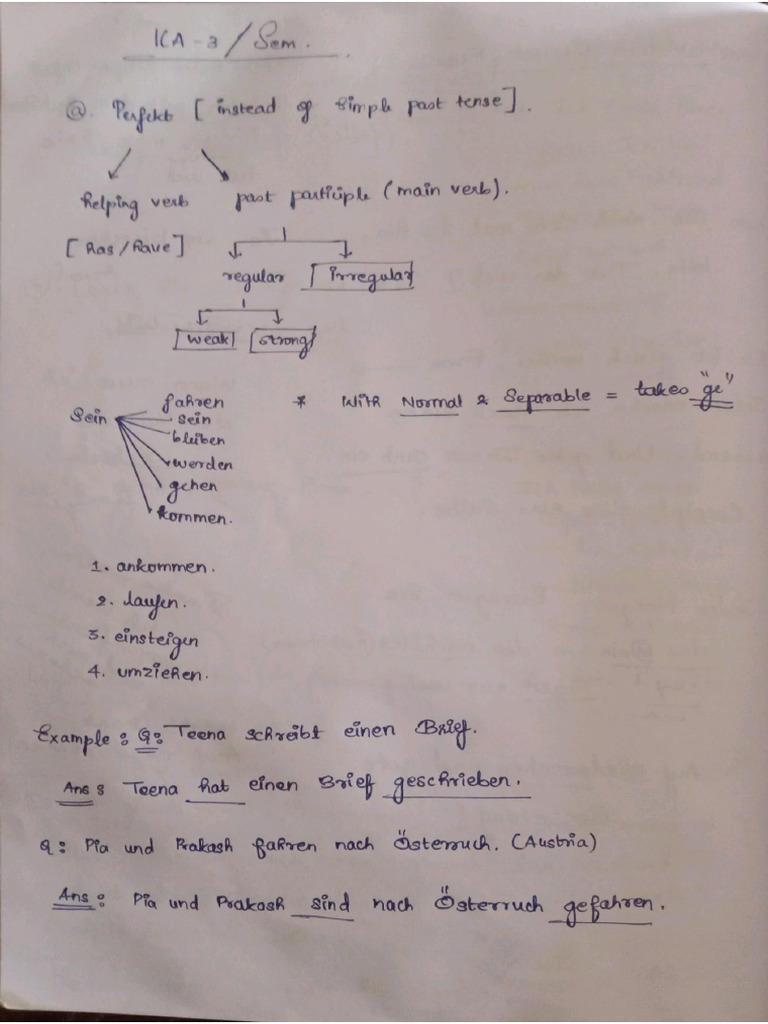 ICA-3/Sem.
@. Perfekt [instead of simple past tense].
helping verb past participle (main verb).
[has/have]
regular irregular
weak strong
Sein fahren * With Normal & Separable = takes "ge"
sein
bleiben
werden
gehen
kommen.
1. ankommen.
2. laufen.
3. einsteigen
4. umziehen.
Example: Q: Teena schreibt einen Brief.
Ans: Teena hat einen Brief geschrieben.
Q: Pia und Prakash fahren nach Österruch. (Austria)
Ans: Pia und Prakash sind nach Österruch gefahren.